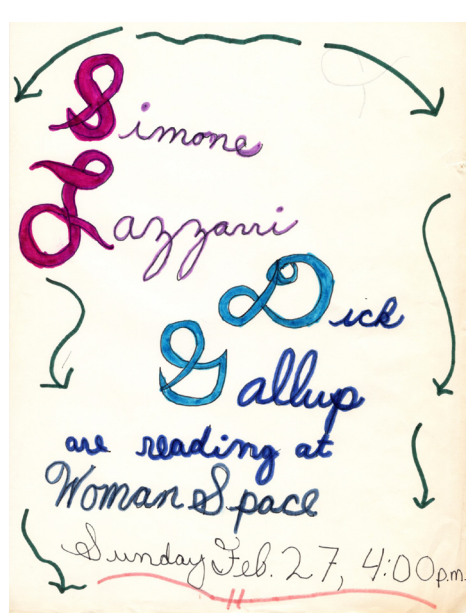 Simone
Lazzarri
Dick
Gallup
are reading at
Woman Space
Sunday Feb. 27, 4:00 p.m.